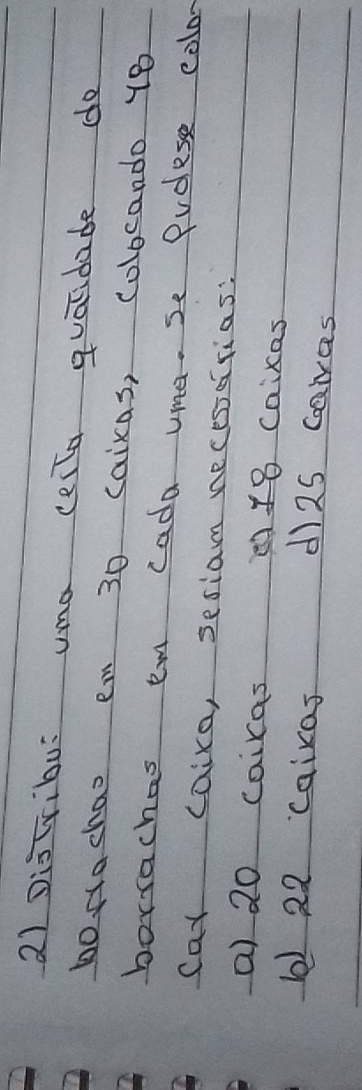 2) Distribui uma certa quatidade de
borrachas em 30 caixas, colocando 48
borrachas em cada uma. Se pudese colo-
car caixa, seriam necessárias:
a) 20 caixas c) 18 caixas
b) 22 caixas d) 25 caixas